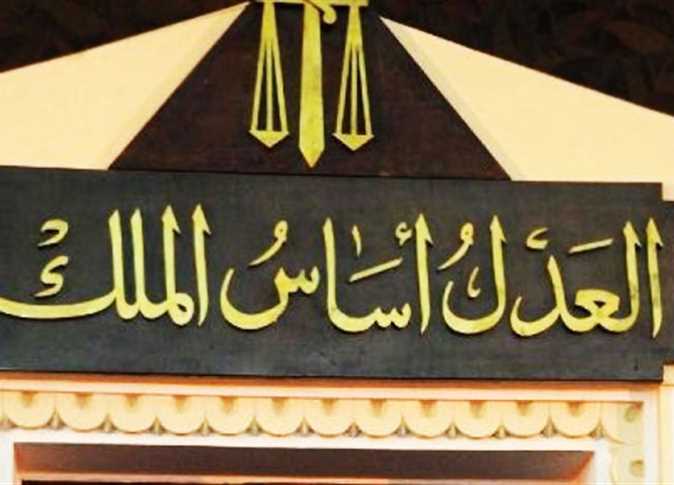 العَدْلُ أسَاسُ الملكْ